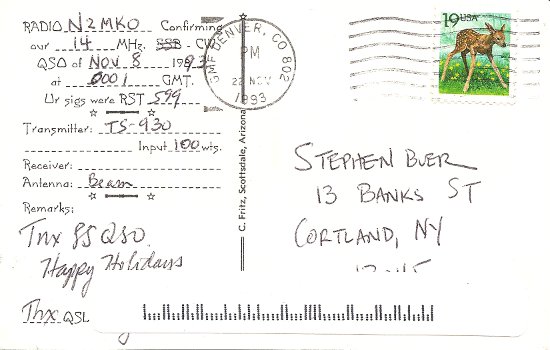 RADIO N2MKO Confirming
our 14 MHz. SSB - CW
QSO of Nov. 8 1993
at 0001 GMT.
Ur sigs were RST 599
Transmitter: TS-930
Input 100 wts.
Receiver:
Antenna: Beam
Remarks:
Tnx SS QSO.
Happy Holidays
Thx QSL
C. Fritz, Scottsdale, Arizona
GMF DENVER, CO 802
PM
22 NOV
1993
19 USA
STEPHEN BUER
13 BANKS ST
CORTLAND, NY